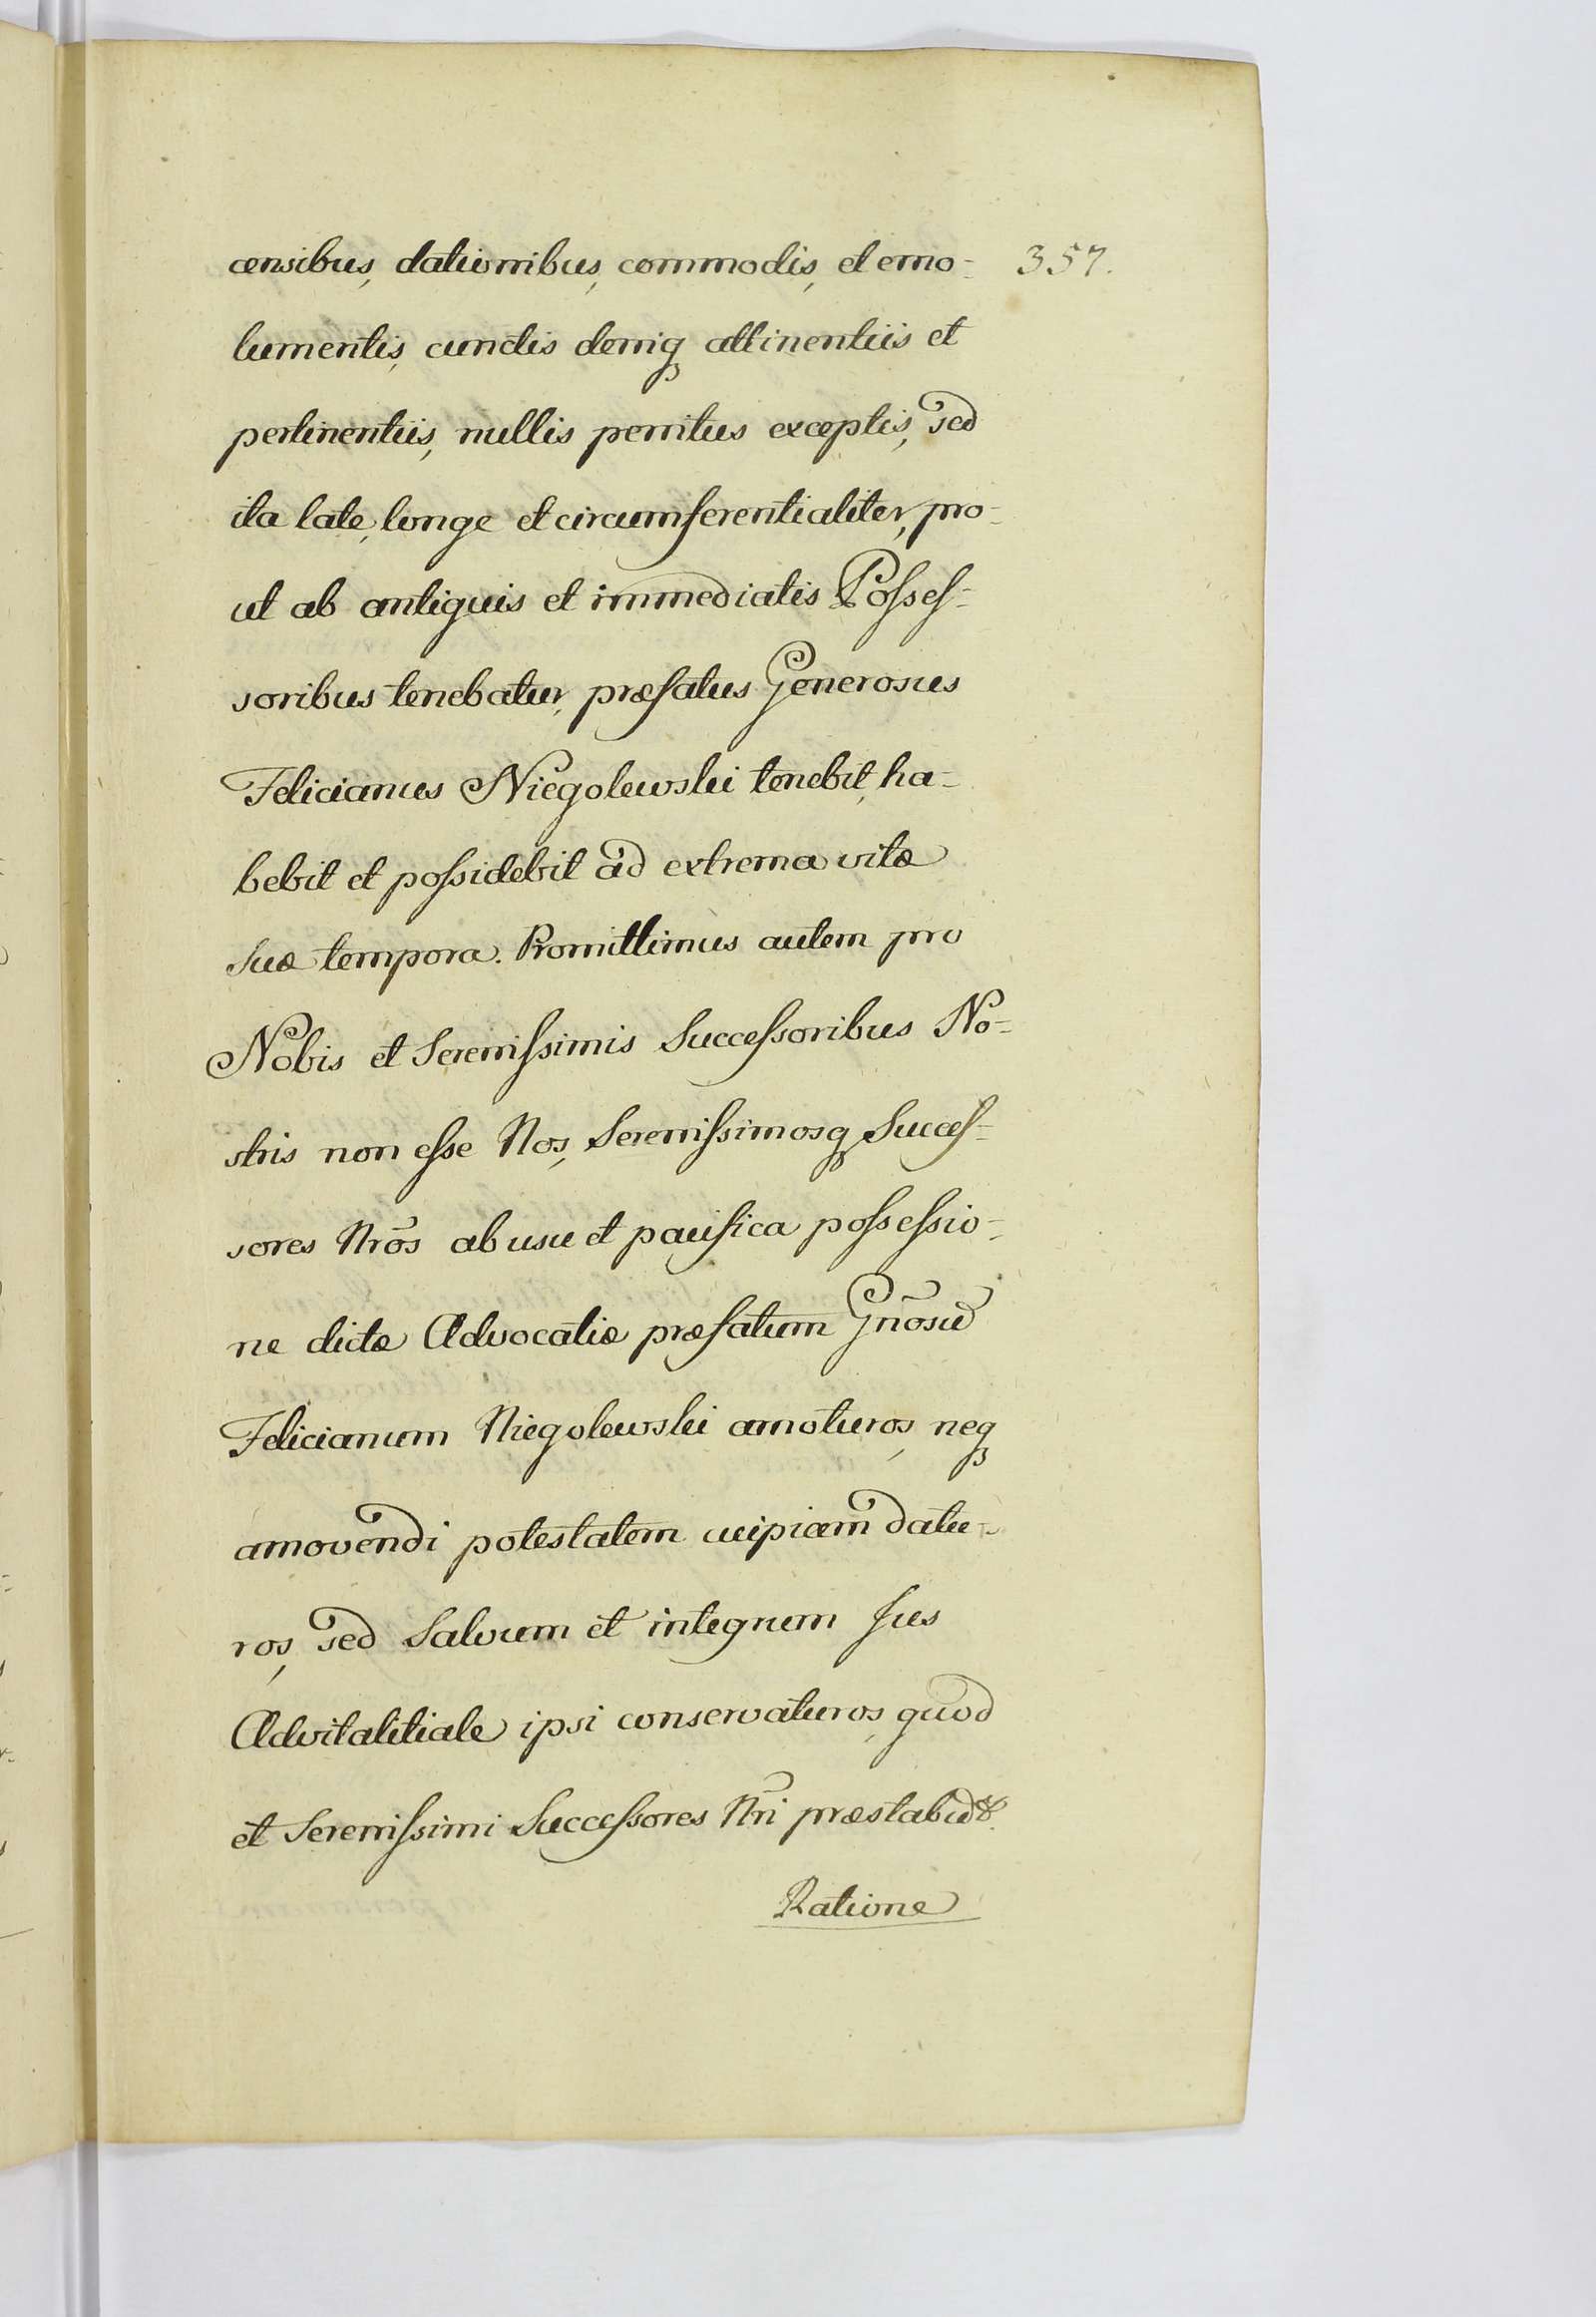 censibus, dationibus, commodis, et emo= 357.
lumentis, cunctis deniq₃ attinentiis et
pertinentiis, nullis penitus exceptis, sed
ita late, longe et circumferentialiter, pro=
ut ab antiquis et immediatis Posses=
soribus tenebatur, præfatus Generosus
Felicianus Niegolewski tenebit, ha=
bebit et possidebit ad extrema vitæ
suæ tempora. Promittimus autem pro
Nobis et Serenissimis Successoribus No=
stris non esse Nos, Serenissimosq₃ Succes=
sores Nrōs ab usu et pacifica possessio=
ne dictæ Advocatiæ præfatum Gnōsū
Felicianum Niegolewski amoturos, neq₃
amovendi potestatem cuipiam datu=
ros, sed Salvum et integrum Jus
Advitalitiale ipsi conservaturos, quod
et Serenissimi Successores Nrī præstabūt.
Ratione